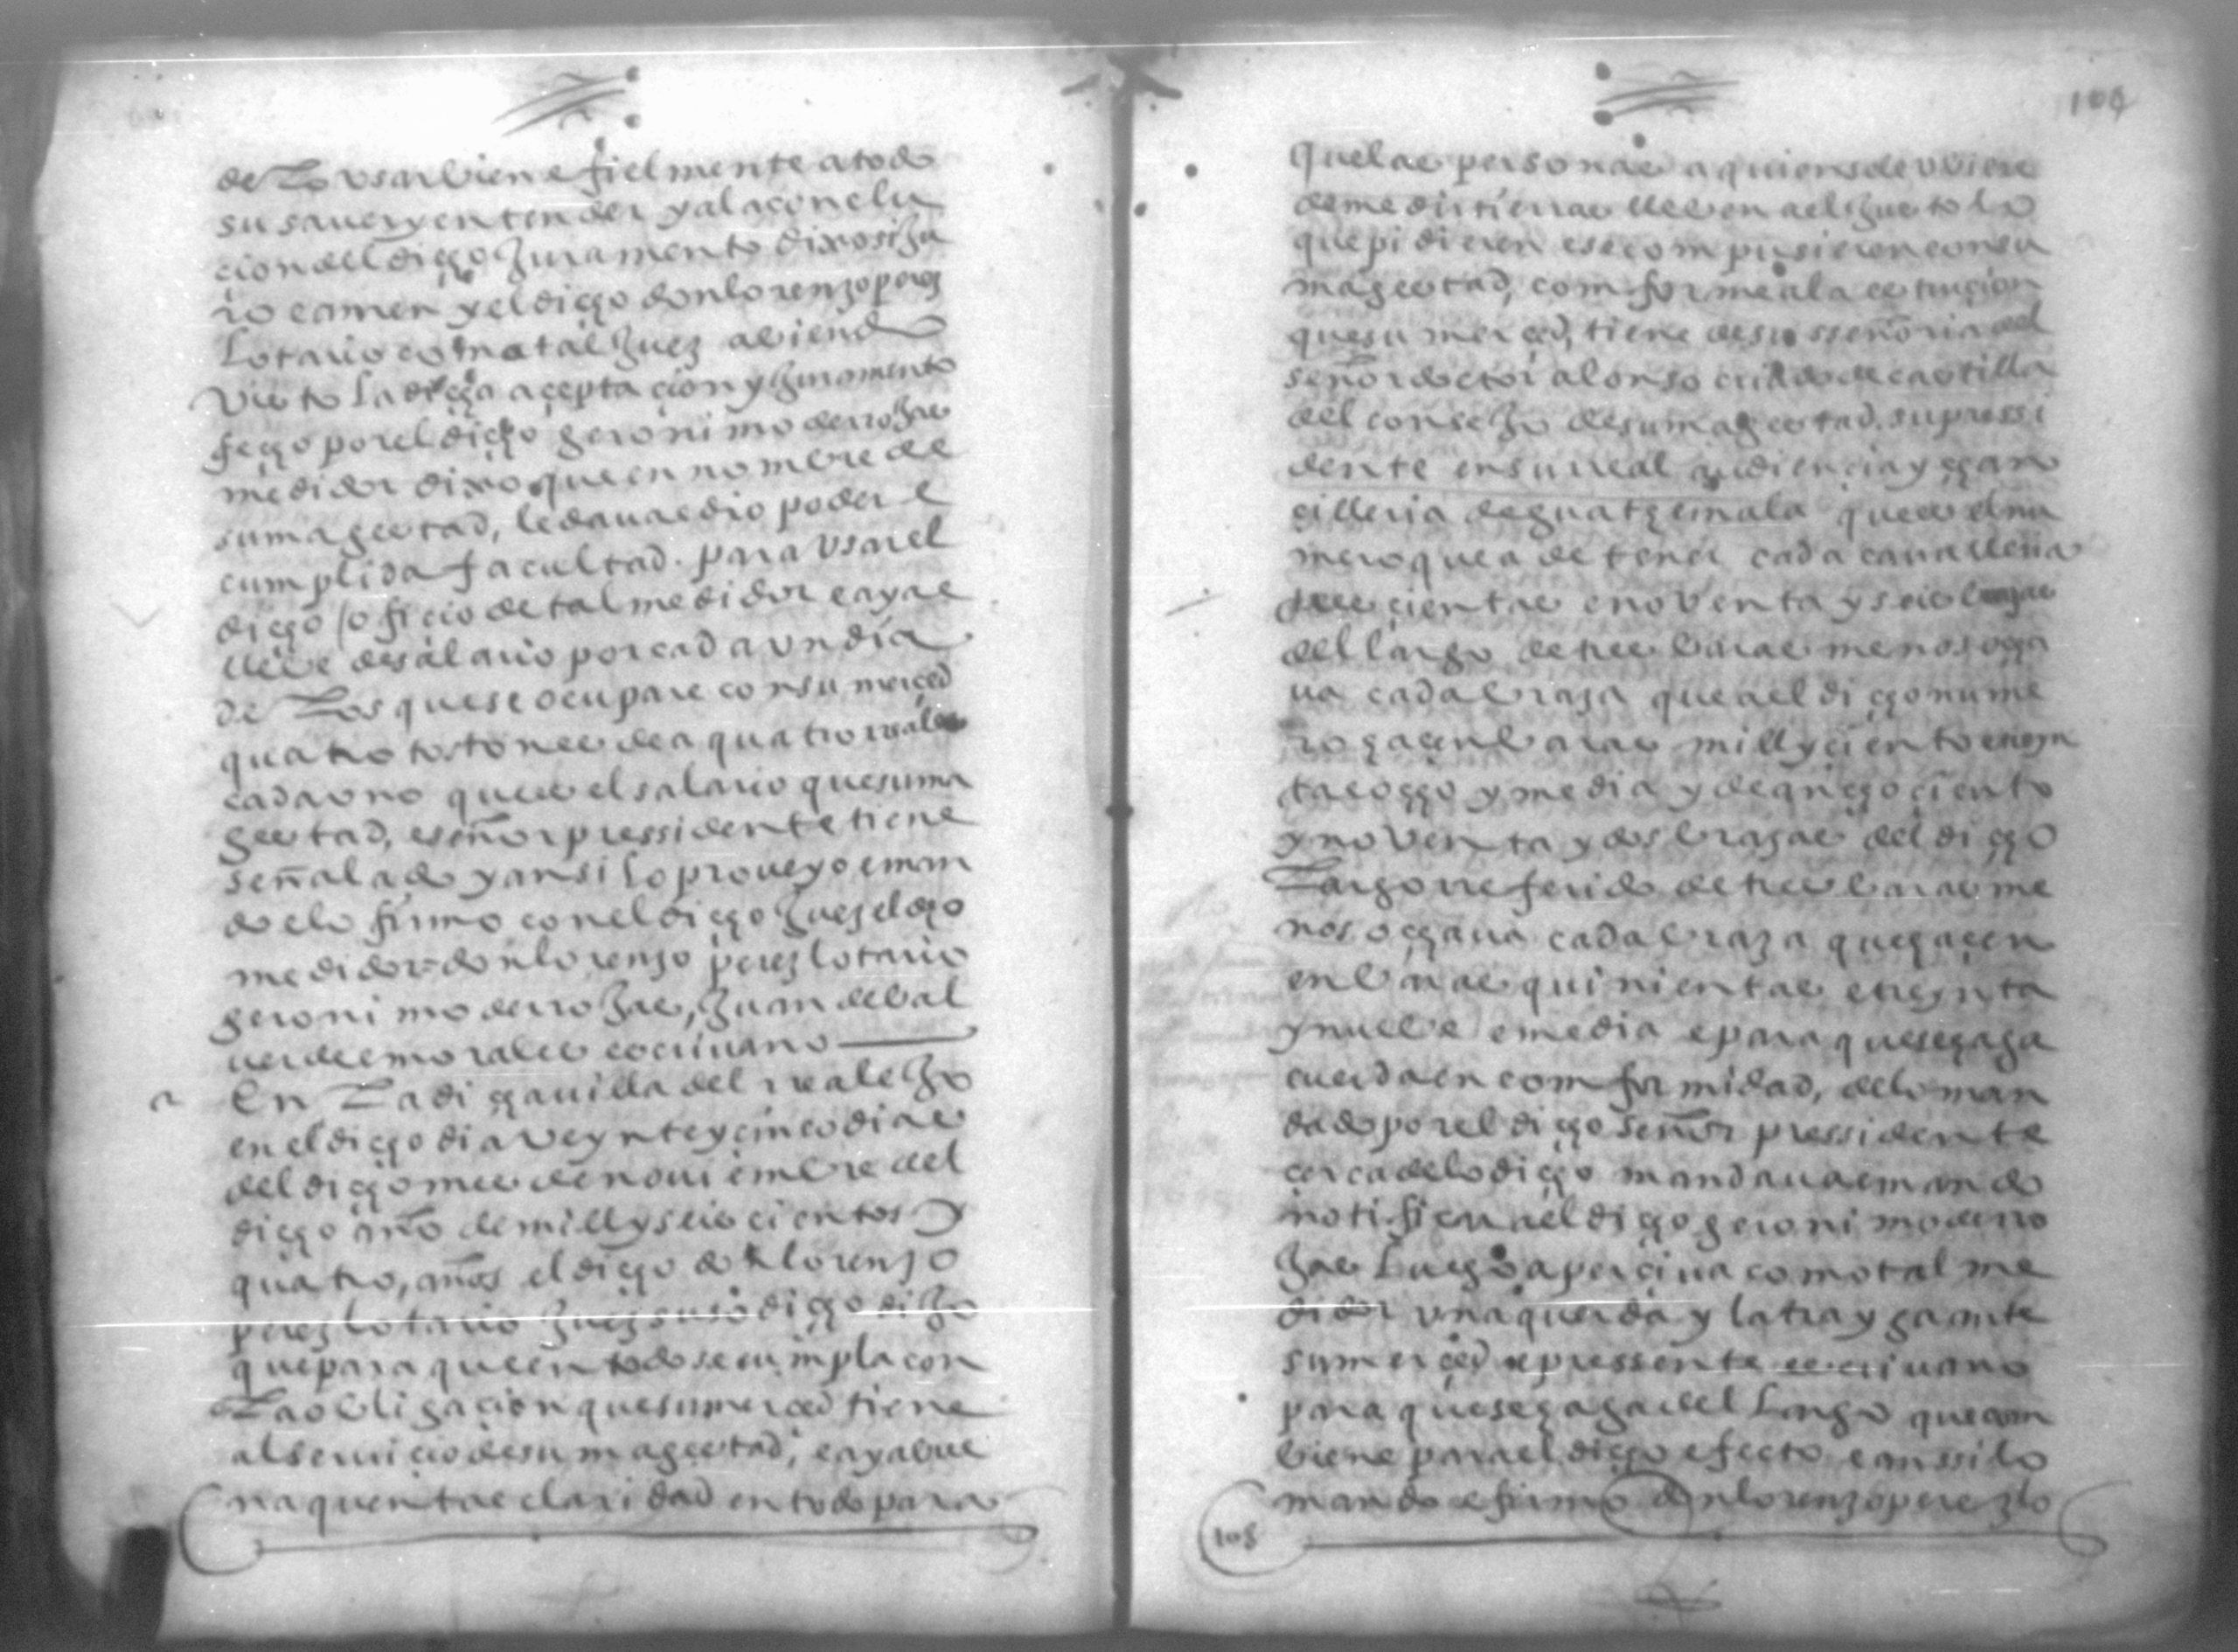 de lo usar bien e fielmente a todo
su saver y entender y a la conclu
cion del dicho juramento dixo si ju
ro e amen y el dicho don lorenzo perez
lotario como tal juez abiendo
visto la dicha aceptacion y juramento
fecho por el dicho geronimo de rrojas
medidor dixo que en nombre de
su magestad, le dava e dio poder e
cumplida facultad. para usar el
dicho oficio de tal medidor e aya e
lleve de salario por cada un dia
de los que se ocupare con su merced
quatro tostones de a quatro rreales
cada uno que es el salario que su ma
gestad, e señor pressidente tiene
señalado y ansi lo proveyo e man
do e lo firmo con el dicho juez el dho
medidor don lorenzo perez lotario
geronimo de rrojas, juan de bal
verde e morales escrivano
En la dicha villa del rrealejo
en el dicho dia veynte y cinco dias
del dicho mes de noviembre del
dicho año de mill y seis cientos y
quatro, años el dicho don lorenzo
perez lotario juez suso dicho dijo
que para que en todo se cumpla con
la obligacion que su merced tiene
al servicio de su magestad, e aya bue
na quenta e claridad en todo para
109
que las personas a quien se de ubiere
de medir tierras lleven a el justo lo
que pidieren e se compusieren con su
magestad, comforme a la
que su merced, tiene de su sseñoria del
señor doctor alonso criado de castilla
del consejo de su magestad. su pressi
dente en su rreal audiencia y chan
cilleria de guathemala que es el nu
mero que a de tener cada cavalleria
trescientas e noventa y seis brazas
del largo de tres baras menos ocha
va cada braza que a el dicho nume
ro hacen baras mill y ciento e
tas ocho y media y de ancho ciento
y noventa y dos brazas del dicho
largo rreferido de tres baras me
nos ochava cada braza que hacen
en baras quinientas e treynta
y nueve e media e para que se haga
cuerda en comformidad, de lo man
dado por el dicho señor pressidente
cerca de lo dicho mandava e mando
notificar a el dicho geronimo de rro
jas luego aperciva como tal me
didor una querda y la trayga ante
su merced e pressente escrivano
para que se haga del largo que com
biene para el dicho efecto e anssi lo
mando e firmo don lorenzo perez lo
108